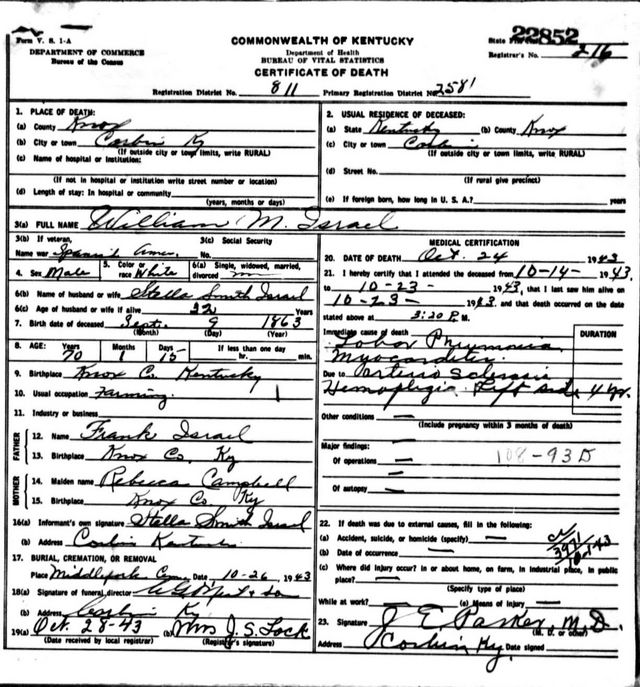 Form V. S. 1-A
DEPARTMENT OF COMMERCE
Bureau of the Census
COMMONWEALTH OF KENTUCKY
Department of Health
BUREAU OF VITAL STATISTICS
CERTIFICATE OF DEATH
State File No. 22852
Registrar's No. 216
Registration District No. 811 Primary Registration District No. 2581
1. PLACE OF DEATH:
(a) County Knox
(b) City or town Corbin Ky
(If outside city or town limits, write RURAL)
(c) Name of hospital or institution:
(If not in hospital or institution write street number or location)
(d) Length of stay: In hospital or community
(years, months or days)
2. USUAL RESIDENCE OF DECEASED:
(a) State Kentucky (b) County Knox
(c) City or town Corbin
(If outside city or town limits, write RURAL)
(d) Street No.
(If rural give precinct)
(e) If foreign born, how long in U. S. A.? years
3(a) FULL NAME William M. Israel
3(b) If veteran, Name war Spanish Amer. 3(c) Social Security No.
4. Sex Male 5. Color or race White 6(a) Single, widowed, married, divorced m
6(b) Name of husband or wife Stella Smith Israel
6(c) Age of husband or wife if alive Years
7. Birth date of deceased Sept. 9 1863
(Month) (Day) (Year)
8. AGE: Years 70 Months 1 Days 15 If less than one day hr. min.
9. Birthplace Knox Co. Kentucky
10. Usual occupation Farming
11. Industry or business
FATHER
12. Name Frank Israel
13. Birthplace Knox Co. Ky
MOTHER
14. Maiden name Rebecca Campbell
15. Birthplace Knox Co Ky
16(a) Informant's own signature Stella Smith Israel
(b) Address Corbin Kentucky
17. BURIAL, CREMATION, OR REMOVAL
Place Cem. Date, 10-26, 1943
18(a) Signature of funeral director & Son
(b) Address Corbin Ky.
19(a) Oct. 28-43 (b) Mrs J. S. Lock
(Date received by local registrar) (Registrar's signature)
MEDICAL CERTIFICATION
20. DATE OF DEATH Oct. 24 1943
21. I hereby certify that I attended the deceased from 10-14- 1943,
to 10-23- 1943, that I last saw him alive on
10-23- 1943, and that death occurred on the date
stated above at 3:20 P.M.
Immediate cause of death DURATION
Lobar Pneumonia
Myocarditis
Due to Arterio Sclerosis
Hemaplegia. Left side 4 yr.
Other conditions —
(Include pregnancy within 3 months of death)
Major findings:
Of operations — 108-93D
Of autopsy —
22. If death was due to external causes, fill in the following:
(a) Accident, suicide, or homicide (specify) —
(b) Date of occurrence —
(c) Where did injury occur? in or about home, on farm, in industrial place, in public
place? —
(Specify type of place)
While at work? — (e) Means of injury —
23. Signature J E Parker, M.D.
(M. D. or other)
Address Corbin Ky. Date signed